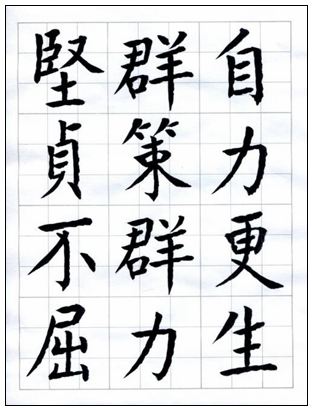 自力更生
群策群力
堅貞不屈